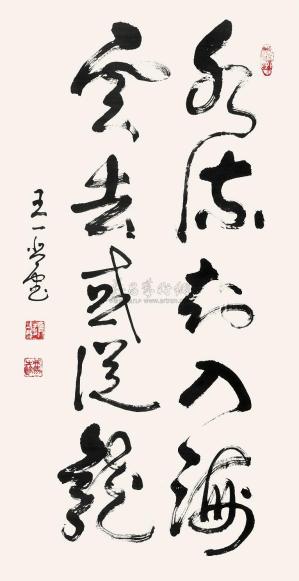 水流知入海
雲去或從龍
王一